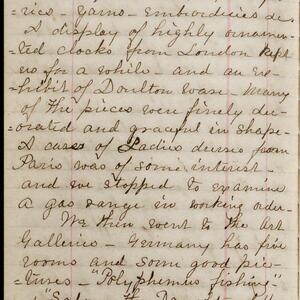 =ries - yarns - embroidries &c.
A display of highly ornamen-
=ted clocks from London kept
us for a while - and an ex-
=hibit of Doulton ware. Many
of the pieces were finely de-
=orated and graceful in shape -
A case of Ladies dresses from
Paris was of some interest -
and we stopped to examine
a gas range in working order -
We then went to the Art
Galleries - Germany has five
rooms and some good pic-
=tures - "Polyphemus fishing"